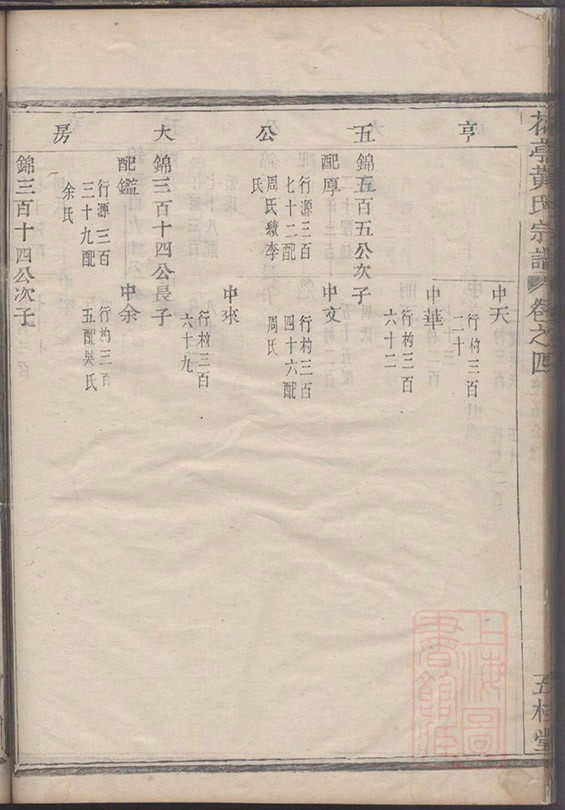 亭黃氏宗譜
卷之四
亨
五
公
大
房
中天
行杓三百
二十
中華
行杓三百
六十二
錦五百五公次子
配厚
行源三百
七十二配
周氏續李
氏
中文
行杓三百
四十六配
周氏
中來
行杓三百
六十九
錦三百十四公長子
配鑑
行源三百
三十九配
余氏
中余
行杓三百
五配吳氏
錦三百十四公次子
五桂堂
上海圖
書館藏